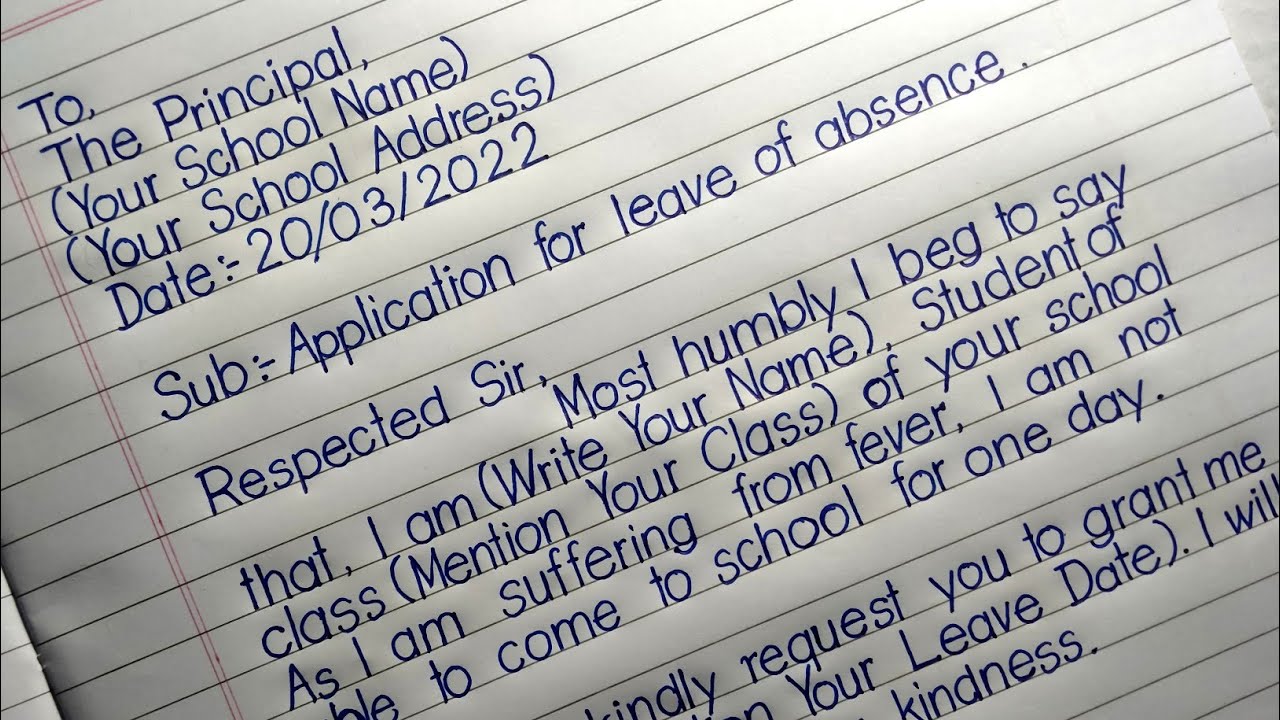 To,
The Principal,
(Your School Name)
(Your School Address)
Date:- 20/03/2022
Sub:- Application for leave of absence.
Respected Sir,
Most humbly I beg to say
that, I am (Write Your Name), Student of
class (Mention Your Class) of your school
As I am suffering from fever, I am not
to come to school for one day.
kindly request you to grant me
Your Leave Date). I will
kindness.